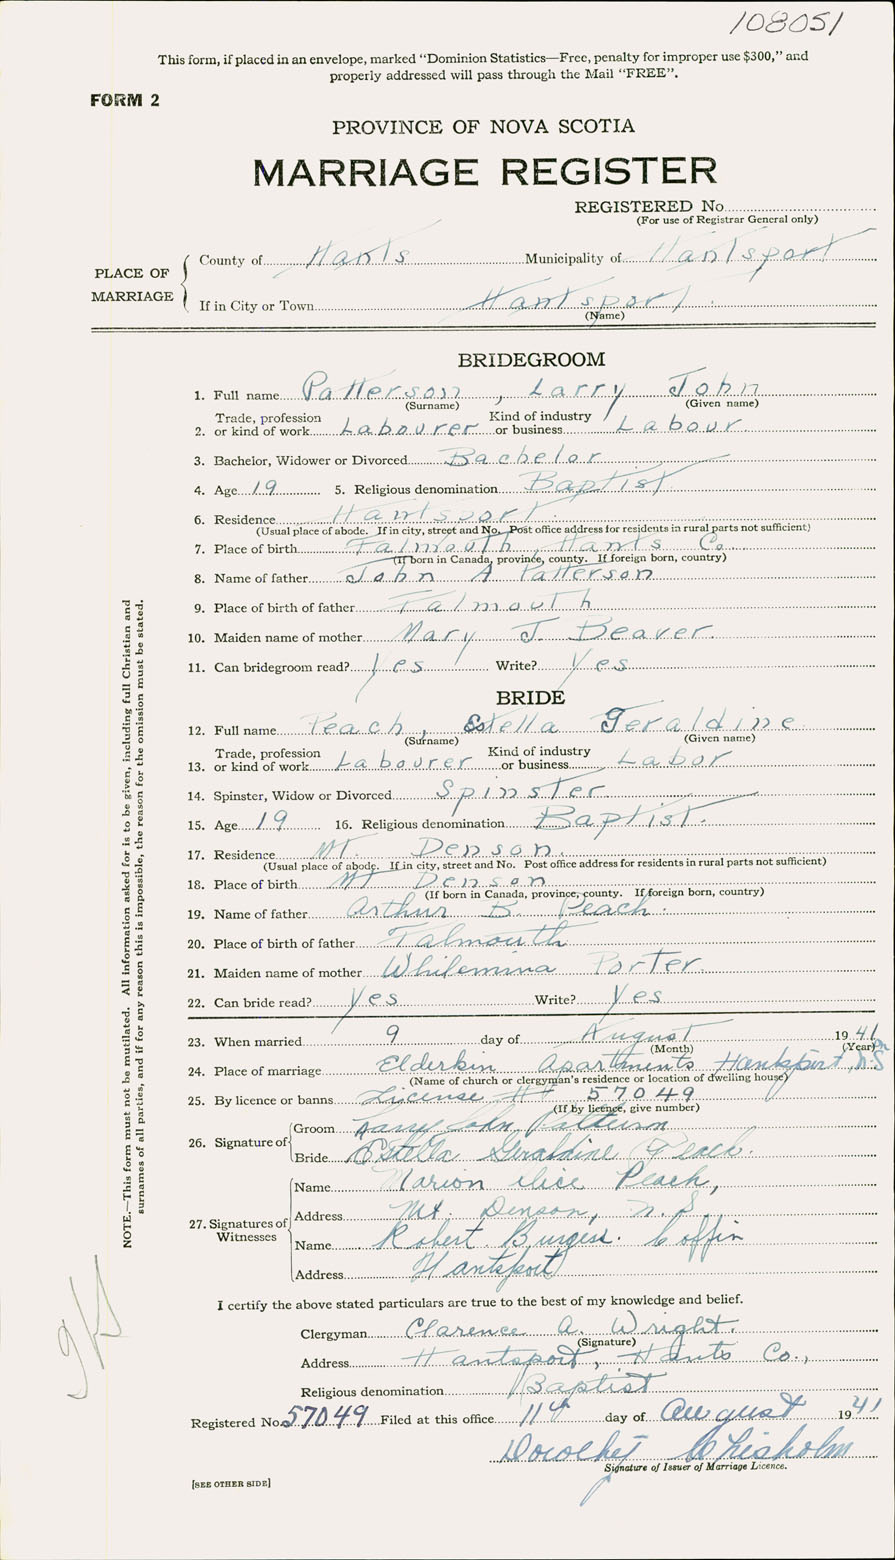 108051
This form, if placed in an envelope, marked “Dominion Statistics—Free, penalty for improper use $300,” and
properly addressed will pass through the Mail “FREE”.
FORM 2
PROVINCE OF NOVA SCOTIA
MARRIAGE REGISTER
REGISTERED No.
(For use of Registrar General only)
PLACE OF MARRIAGE
County of Hants Municipality of Hantsport
If in City or Town Hantsport
(Name)
BRIDEGROOM
1. Full name Patterson, Larry John
(Surname) (Given name)
Trade, profession Kind of industry
2. or kind of work Labourer or business Labour
3. Bachelor, Widower or Divorced Bachelor
4. Age 19 5. Religious denomination Baptist
6. Residence Hantsport.
(Usual place of abode. If in city, street and No. Post office address for residents in rural parts not sufficient)
7. Place of birth Falmouth, Hants Co.
(If born in Canada, province, county. If foreign born, country)
8. Name of father John A Patterson
9. Place of birth of father Falmouth
10. Maiden name of mother Mary J. Beaver.
11. Can bridegroom read? Yes Write? Yes
BRIDE
12. Full name Peach, Estella Geraldine
(Surname) (Given name)
Trade, profession Kind of industry
13. or kind of work Labourer or business Labor
14. Spinster, Widow or Divorced Spinster
15. Age 19 16. Religious denomination Baptist.
17. Residence Mt. Denson.
(Usual place of abode. If in city, street and No. Post office address for residents in rural parts not sufficient)
18. Place of birth Mt Denson
(If born in Canada, province, county. If foreign born, country)
19. Name of father Arthur B. Peach.
20. Place of birth of father Falmouth
21. Maiden name of mother Whilemina Porter.
22. Can bride read? Yes Write? Yes
23. When married 9 day of August 1941
(Month) (Year)
24. Place of marriage Elderkin Apartments Hantsport, N.S
(Name of church or clergyman's residence or location of dwelling house)
25. By licence or banns License # 57049
(If by licence, give number)
26. Signature of
Groom Larry John Patterson
Bride Estella Geraldine Peach.
27. Signatures of Witnesses
Name Marion Alice Peach,
Address Mt. Denson, N.S.
Name Robert Burgess. Coffin
Address Hantsport
I certify the above stated particulars are true to the best of my knowledge and belief.
Clergyman Clarence A. Wright.
(Signature)
Address Hantsport, Hants Co.,
Religious denomination Baptist
Registered No. 57049 Filed at this office 11th day of August 1941
Dorothy Chisholm
Signature of Issuer of Marriage Licence.
[SEE OTHER SIDE]
NOTE.—This form must not be mutilated. All information asked for is to be given, including full Christian and
surnames of all parties, and if for any reason this is impossible, the reason for the omission must be stated.